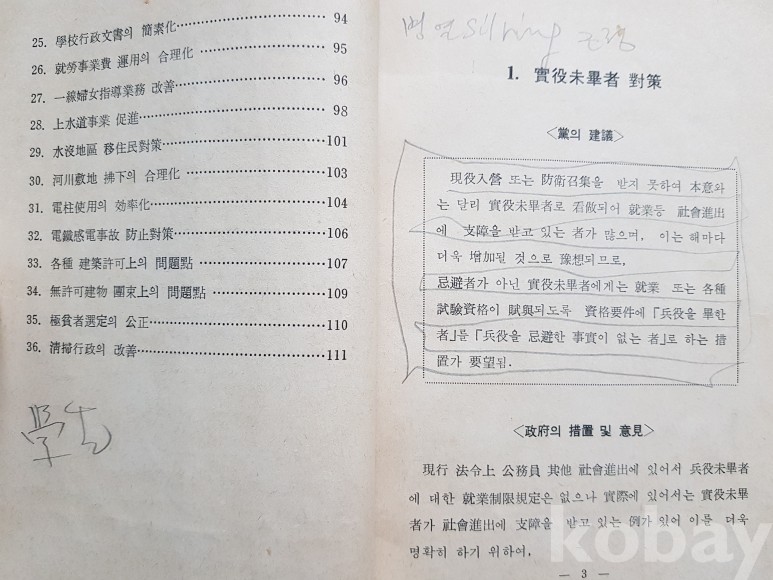 94
25. 學校行政文書의 簡素化
26. 就勞事業費 運用의 合理化 95
27. 一線婦女指導業務 改善 96
28. 上水道事業 促進 98
29. 水沒地區 移住民對策 101
30. 河川敷地 拂下의 合理化 103
31. 電柱使用의 効率化 104
32. 電鐵感電事故 防止對策 106
33. 各種 建築許可上의 問題點 107
34. 無許可建物 團束上의 問題點 109
35. 極貧者選定의 公正 110
36. 淸掃行政의 改善 111
1. 實役未畢者 對策
<黨의 建議>
現役入營 또는 防衛召集을 받지 못하여 本意와
는 달리 實役未畢者로 看做되어 就業등 社會進出
에 支障을 받고 있는 者가 많으며, 이는 해마다
더욱 增加될 것으로 豫想되므로,
忌避者가 아닌 實役未畢者에게는 就業 또는 各種
試驗資格이 賦與되도록 資格要件에 「兵役을 畢한
者」를 「兵役을 忌避한 事實이 없는 者」로 하는 措
置가 要望됨.
<政府의 措置 및 意見>
現行 法令上 公務員 其他 社會進出에 있어서 兵役未畢者
에 대한 就業制限規定은 없으나 實際에 있어서는 實役未畢
者가 社會進出에 支障을 받고 있는 例가 있어 이를 더욱
明確히 하기 위하여,
— 3 —
kobay